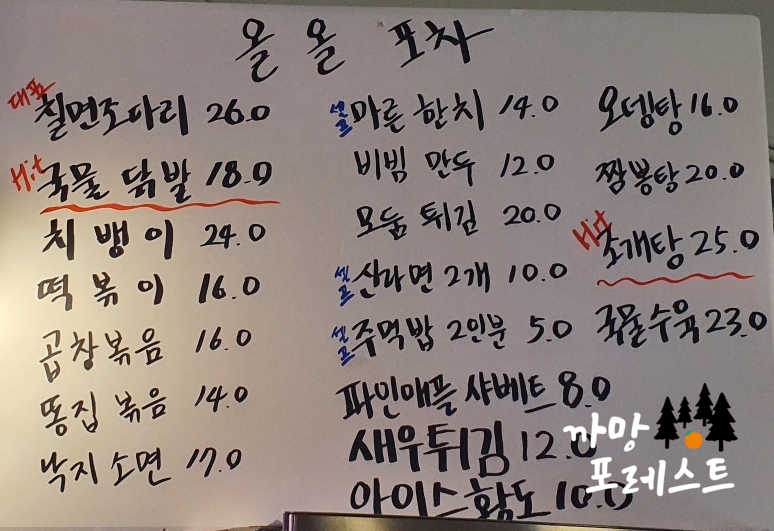 올 올 포차
대표 칠면조다리 26.0
Hit 국물 닭발 18.0
치뱅이 24.0
떡볶이 16.0
곱창볶음 16.0
똥집 볶음 14.0
낙지소면 17.0
셀프 마른 한치 14.0
비빔 만두 12.0
모둠 튀김 20.0
셀프 산라면 2개 10.0
셀프 주먹밥 2인분 5.0
파인애플 샤베트 8.0
새우튀김 12.0
아이스황도 10.0
오뎅탕 16.0
짬뽕탕 20.0
Hit 조개탕 25.0
국물수육 23.0
까망
포레스트